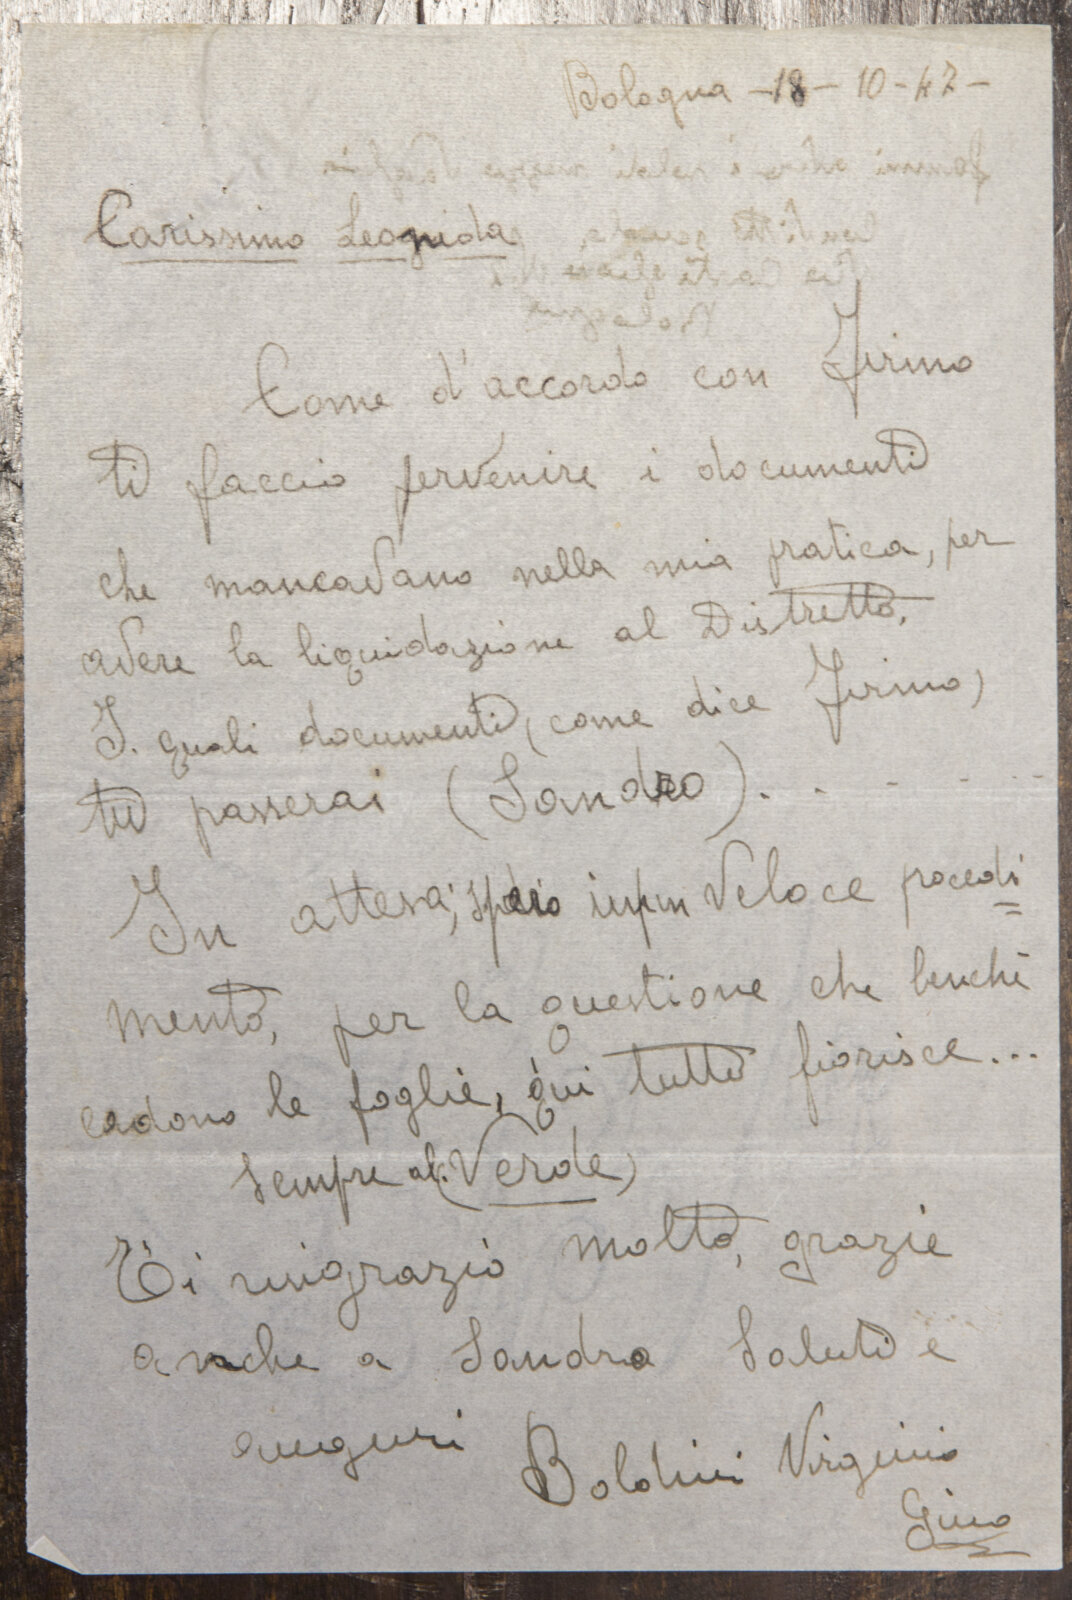 Bologna - 18 - 10 - 47 -
Carissimo Leonida
Come d'accordo con Firino
ti faccio pervenire i documenti
che mancavano nella mia pratica, per
avere la liquidazione al Distretto,
I. quali documenti, (come dice Firino)
tu passerai (Sandro). . . . . .
In attesa, spero in veloce procedi=
mento, per la questione che benchè
cadono le foglie, qui tutto fiorisce...
sempre al (Verde)
Ti ringrazio molto, grazie
anche a Sandra Saluti e
auguri Boldrini Virginio
Gino